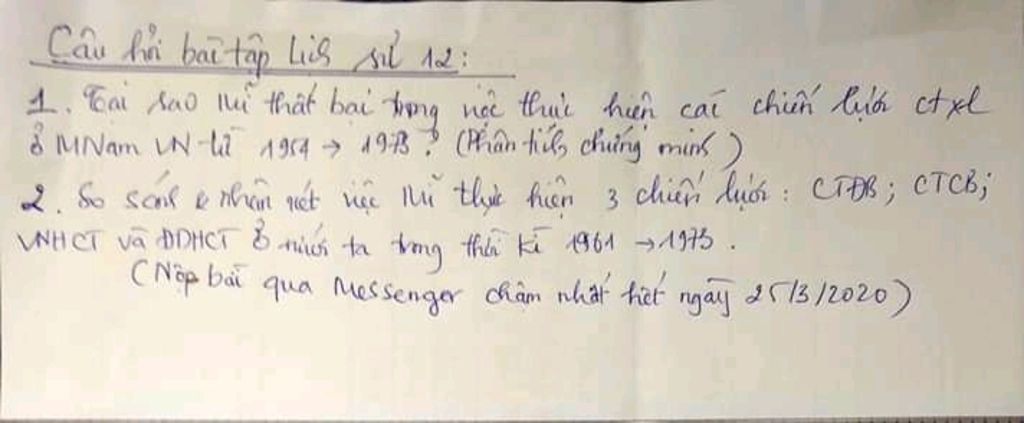 Câu hỏi bài tập Lịch sử 12:
1. Tại sao Mĩ thất bại trong việc thực hiện các chiến lược ctxl
ở MNam VN từ 1954 → 1973? (Phân tích, chứng minh)
2. So sánh & nhận xét việc Mĩ thực hiện 3 chiến lược: CTĐB; CTCB;
VNHCT và ĐDHCT ở nước ta trong thời kì 1961 → 1973.
(Nộp bài qua Messenger chậm nhất hết ngày 25/3/2020)